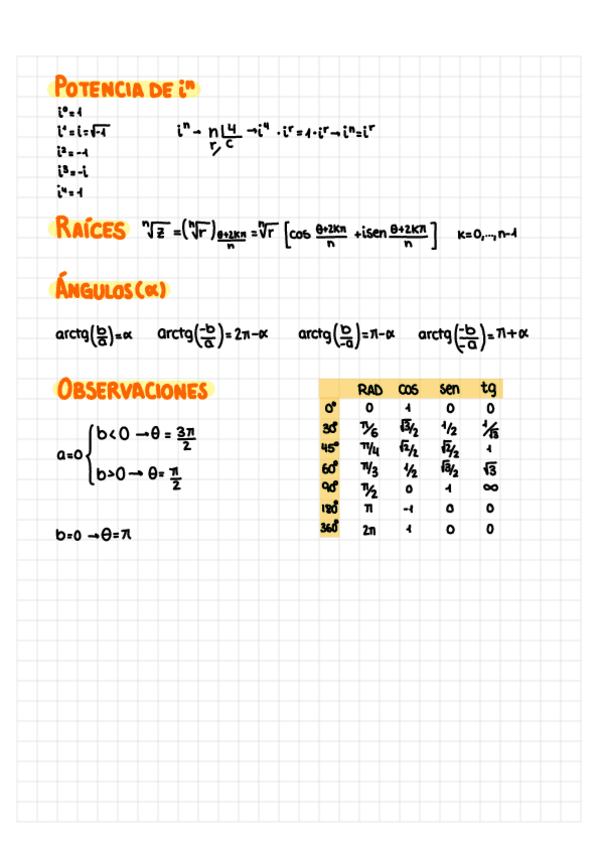 POTENCIA DE iⁿ
i⁰=1
i¹=i=√-1
iⁿ → n|4 → i⁴ · iʳ = 1 · iʳ → iⁿ=iʳ
r/ c
i²=-1
i³=-i
i⁴=1
RAÍCES ⁿ√z = (ⁿ√r)_(θ+2kπ)/n = ⁿ√r [cos (θ+2kπ)/n + isen (θ+2kπ)/n] k=0,...,n-1
ÁNGULOS (α)
arctg(b/a)=α arctg(-b/a)=2π-α arctg(b/-a)=π-α arctg(-b/-a)=π+α
OBSERVACIONES
a=0 { b<0 → θ = 3π/2
b>0 → θ = π/2
b=0 → θ=π
RAD COS sen tg
0° 0 1 0 0
30° π/6 √3/2 1/2 1/√3
45° π/4 √2/2 √2/2 1
60° π/3 1/2 √3/2 √3
90° π/2 0 1 ∞
180° π -1 0 0
360° 2π 1 0 0